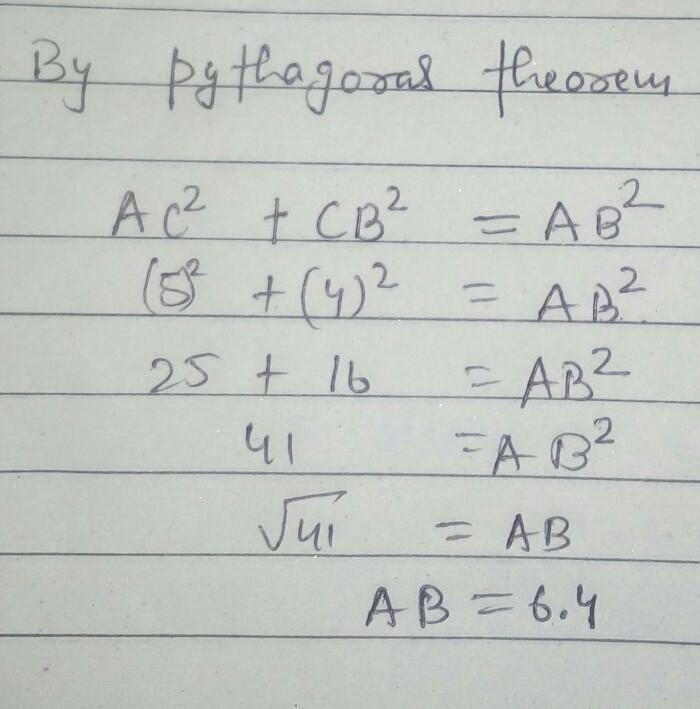 By pythagoras theorem
AC² + CB² = AB²
(5)² + (4)² = AB²
25 + 16 = AB²
41 = AB²
√41 = AB
AB = 6.4